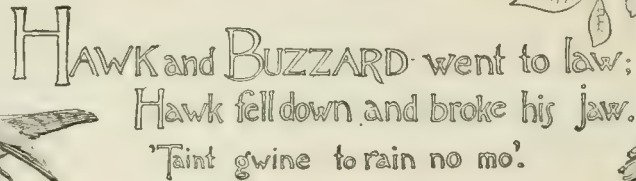 HAWK and BUZZARD went to law;
Hawk fell down and broke his jaw.
'Taint gwine to rain no mo'.